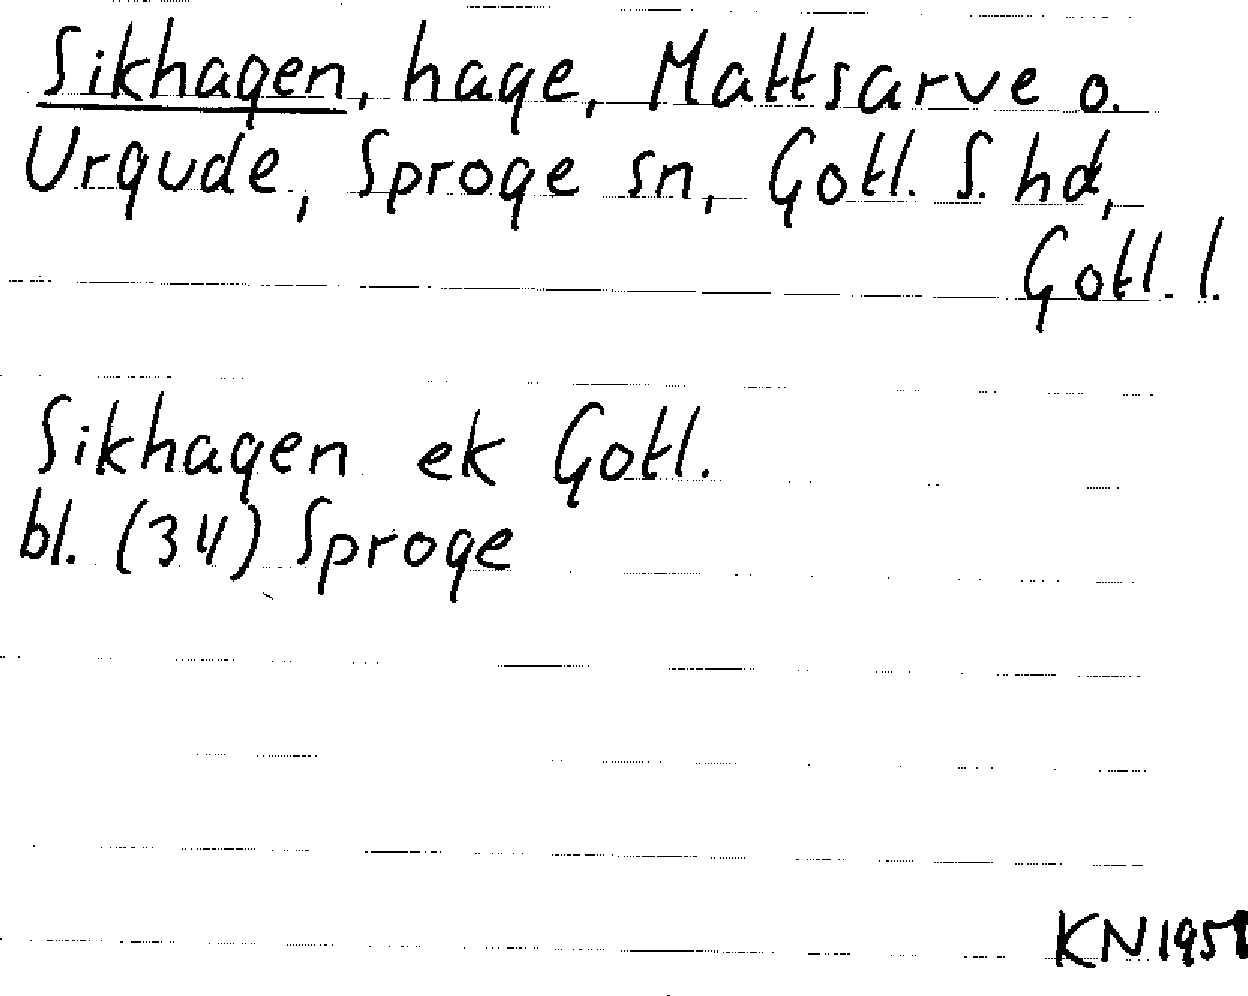 Sikhagen, hage, Mattsarve o.
Urgude, Sproge sn, Gotl. S. hd,
Gotl. l.
Sikhagen ek Gotl.
bl. (34) Sproge
KN